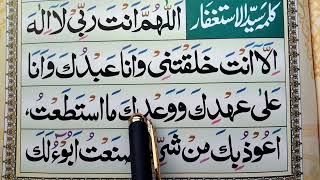 کلمہ سید الاستغفار
اَللّٰهُمَّ اَنْتَ رَبِّيْ لَآ اِلٰهَ
اِلَّآ اَنْتَ خَلَقْتَنِيْ وَاَنَا عَبْدُكَ وَاَنَا
عَلٰى عَهْدِكَ وَوَعْدِكَ مَا اسْتَطَعْتُ،
اَعُوْذُ بِكَ مِنْ شَرِّ صَنَعْتُ اَبُوْٓءُ لَكَ